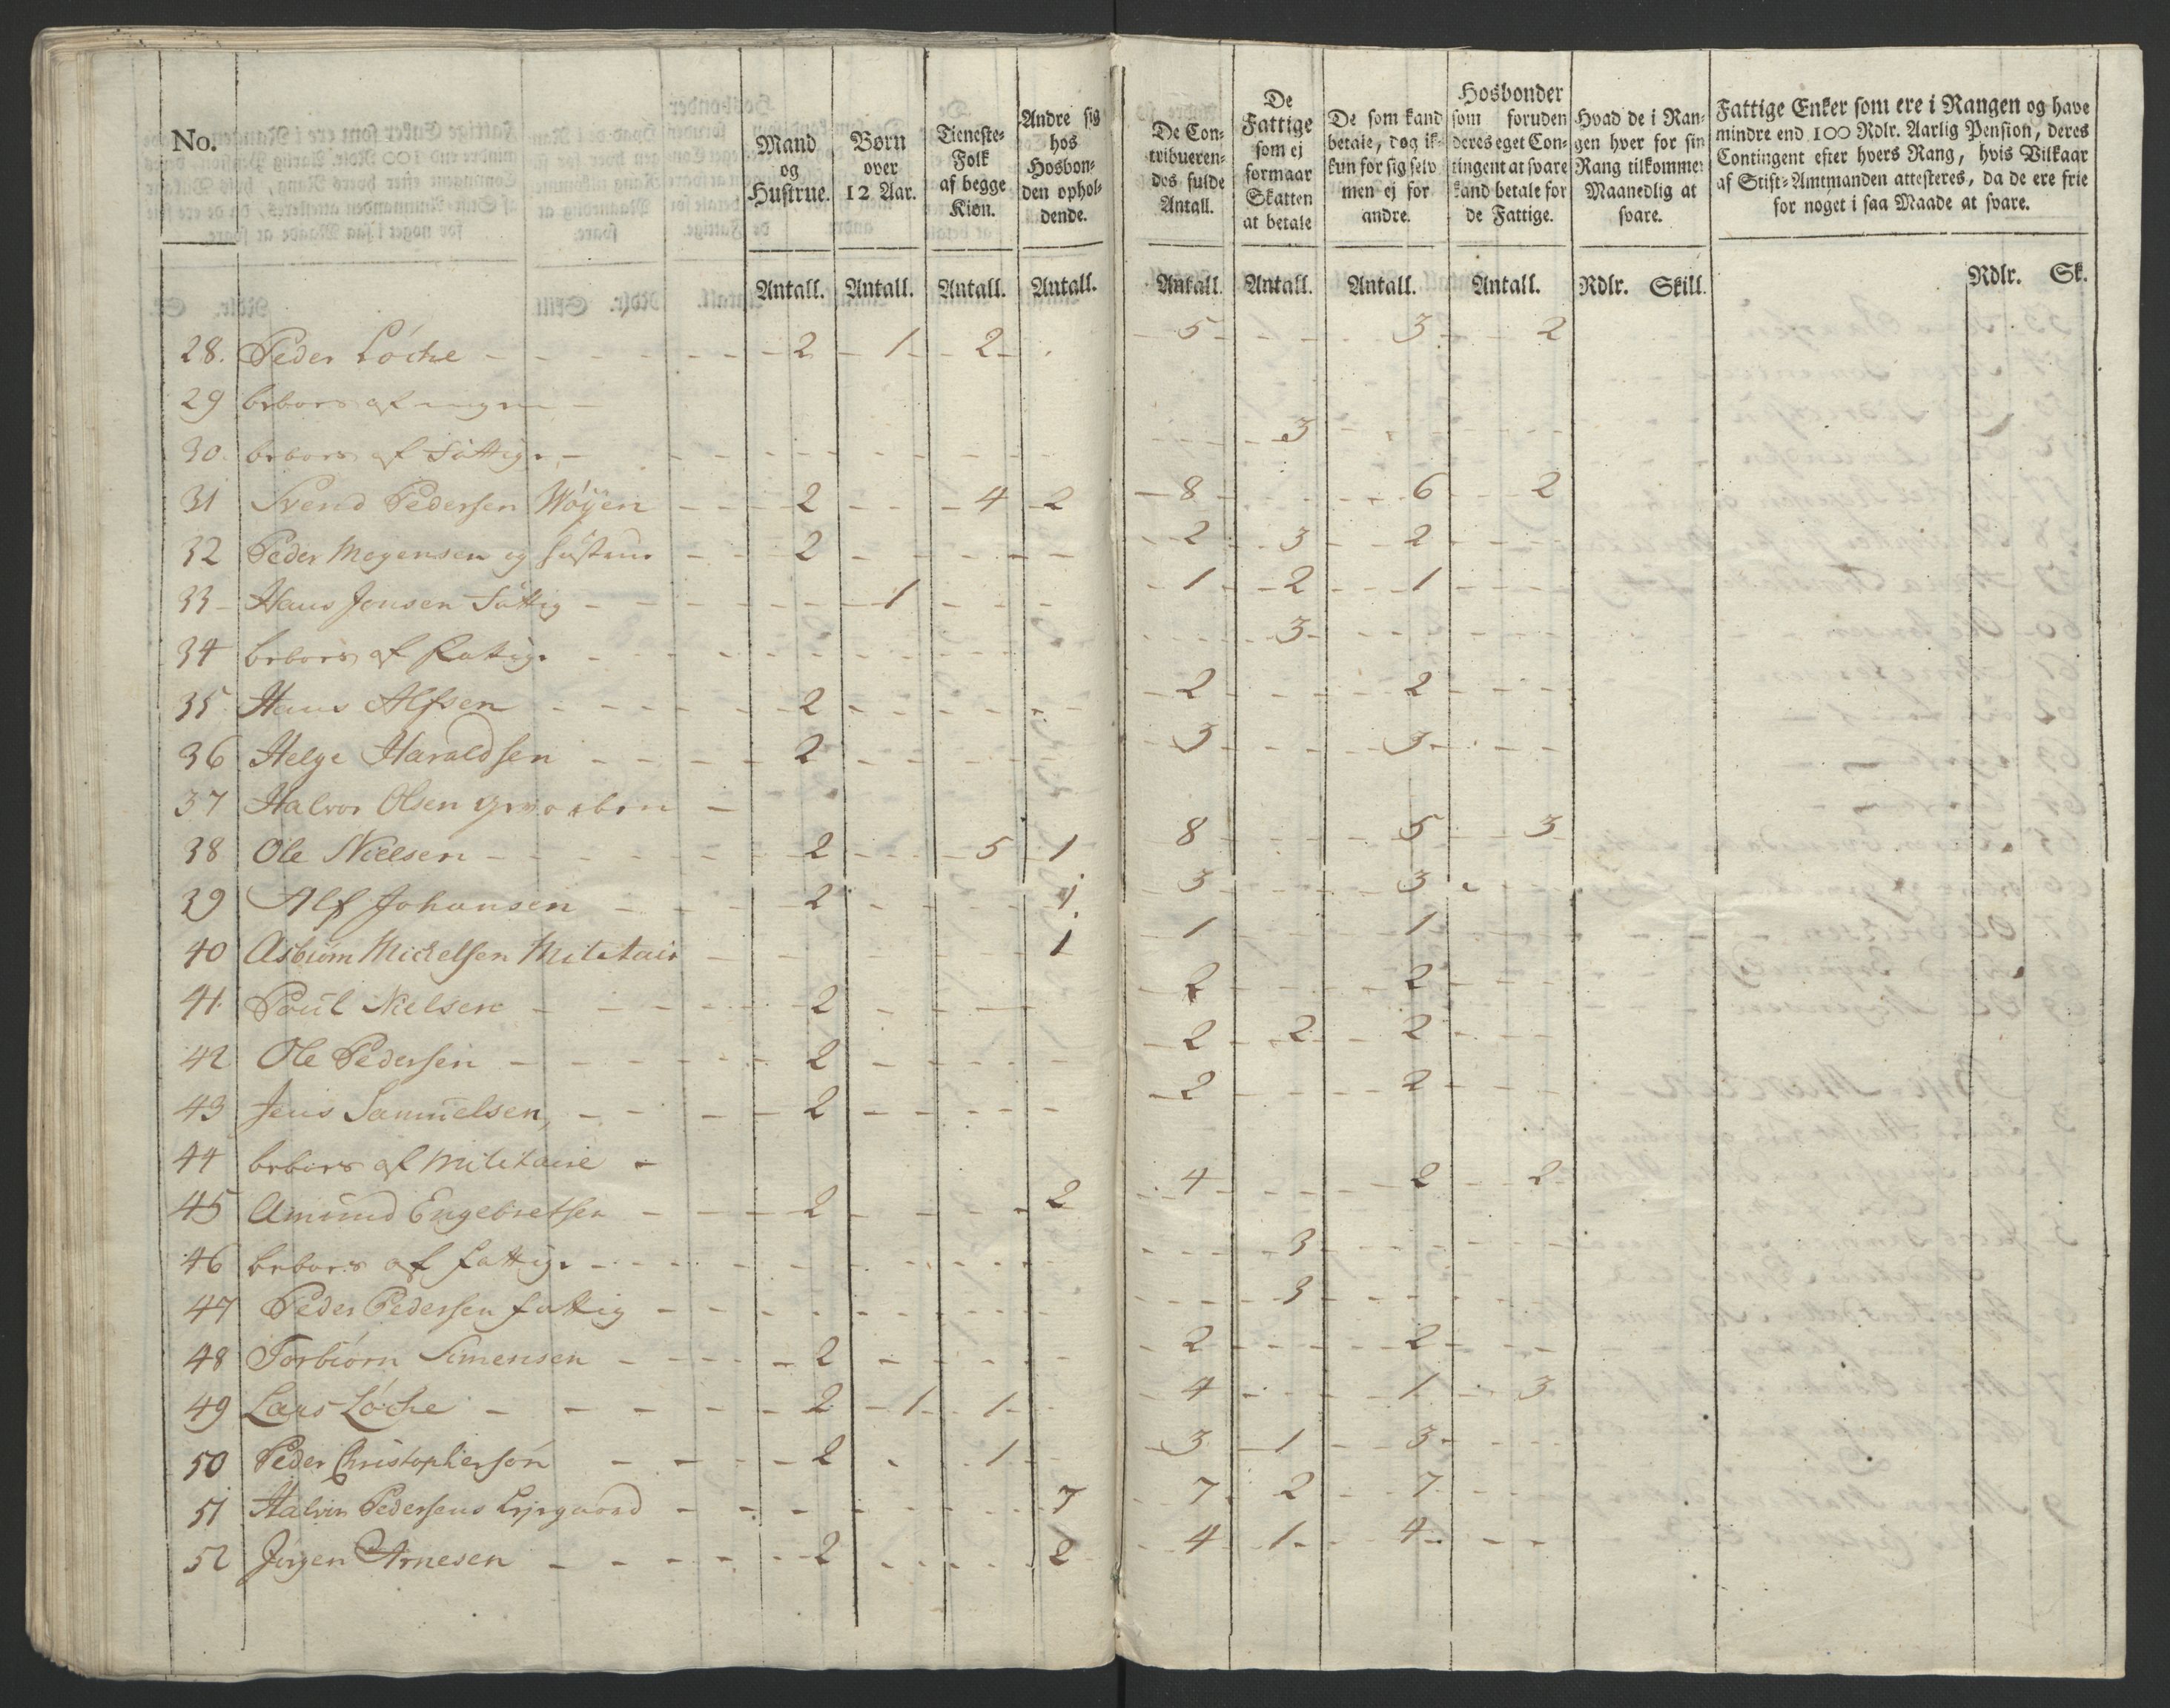 No.
Mand og Hustrue. Børn over 12 Aar. Tieneste-Folk af begge Kiøn. Andre sig hos Hosbonden opholdende. De Contribuerendes fulde Antall. De Fattige som ej formaar Skatten at betale De som kand betale, dog ikkun for sig selv men ej for andre. Hosbonder som foruden deres eget Contingent at svare kand betale for de Fattige. Hvad de i Rangen hver for sin Rang tilkommer Maanedlig at svare. Fattige Enker som ere i Rangen og have mindre end 100 Rdlr. Aarlig Pension, deres Contingent efter hvers Rang, hvis Vilkaar af Stift-Amtmanden attesteres, da de ere frie for noget i saa Maade at svare.
Antall. Antall. Antall. Antall. Antall. Antall. Antall. Antall. Rdlr. Skill. Rdlr. Sk.
28. Peder Löche - 2 - 1 - 2 - 5 - 3 - 2
29 beboes af ingen -
30. beboes af Fattige - 3
31 Svend Pedersen Wöÿen - 2 - 4 - 2 - 8 - 6 - 2
32 Peder Mogensen og hustrue - 2 - 2 - 3 - 2
33 - Hans Jonsen Fattig - 1 - 1 - 2 - 1
34 beboes af Fattige - 3
35 Hans Alfsen - 2 - 2 - 2
36 Helge Haraldsen - 2 - 3 - 3
37 Halvor Olsen
38 Ole Nielsen - 2 - 5 - 1 8 - 5 - 3
39 Alf Johansen - 2 - 1 - 3 - 3
40 Asbiörn Michelsen Militair - 1 - 1 - 1
41. Poül Nielsen - 2 - 2 - 2
42 Ole Pedersen - 2 - 2 - 2 - 2
43 Jens Samüelsen - 2 - 2 - 2
44 beboes af Militaire -
45 Amünd Engebretsen - 2 - 2 - 4 - 2 - 2
46 beboes af fattige - 3
47 Peder Pedersen fattig - 3
48 Torbiörn Simensen - 2 - 2 - 2
49 Lars Löche - 2 - 1 - 1 - 4 - 1 - 3
50 Peder Christophersøn - 2 - 1 - 3 - 1 - 3
51 Halvor Pedersens - 7 - 7 - 2 - 7
52 Jörgen Arnesen - 2 - 2 - 4 - 1 - 4